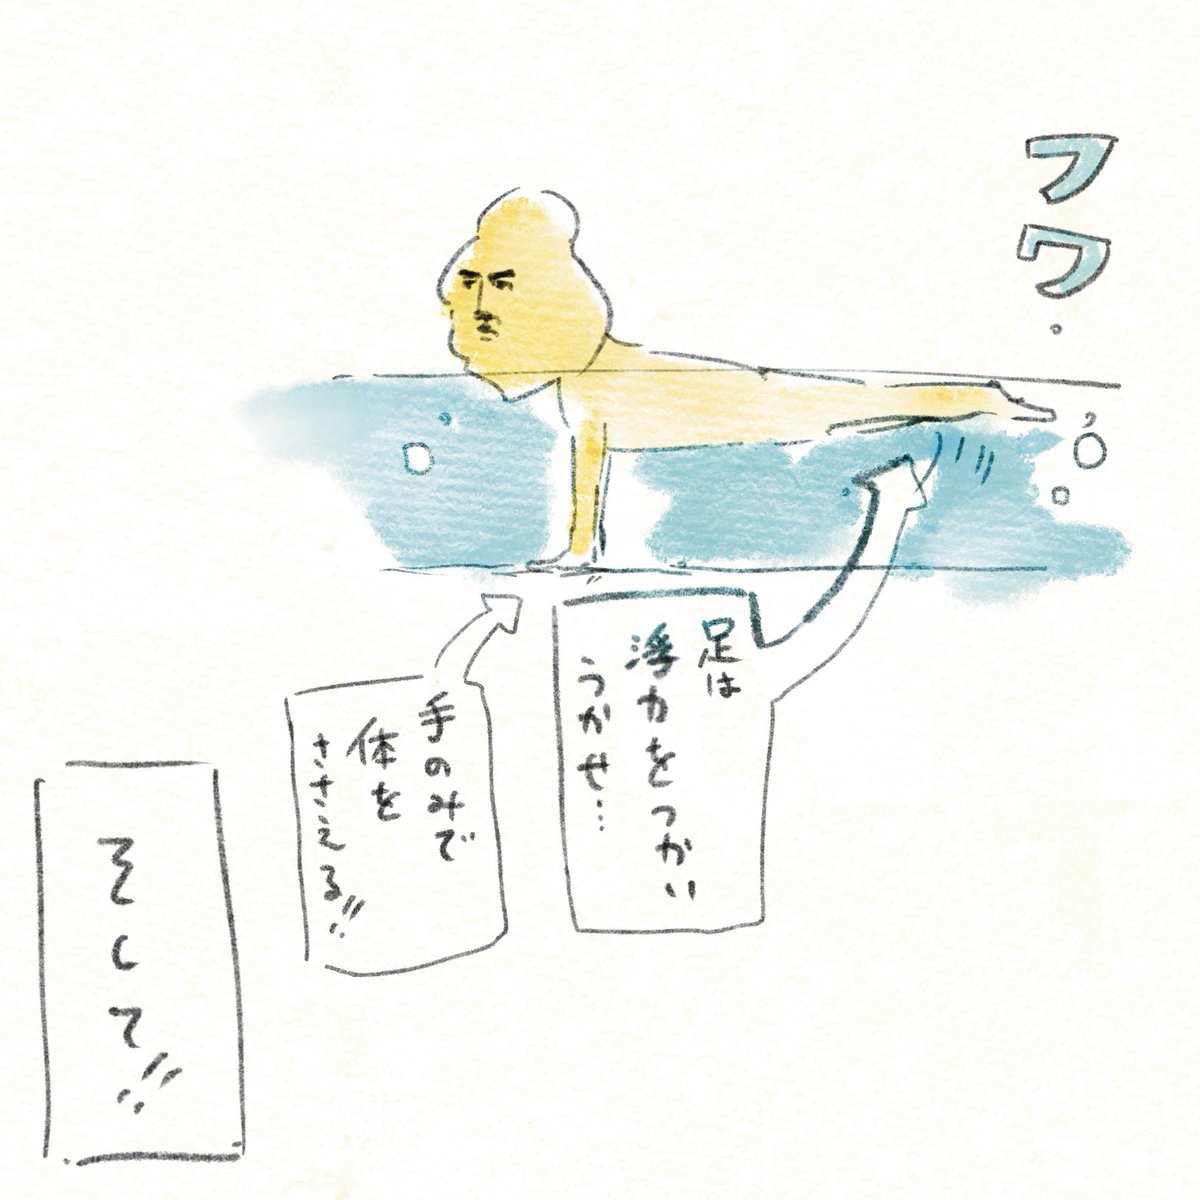 フワ
足は
浮力をつかい
うかせ…
手のみで
体を
ささえる!!
そして!!